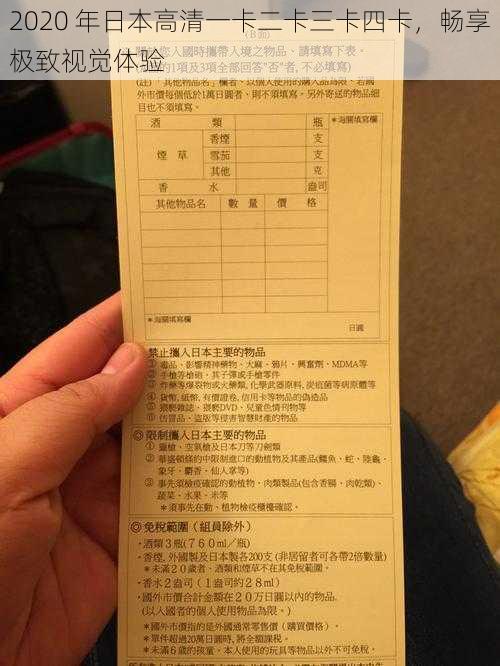 2020 年日本高清一卡二卡三卡四卡，畅享
极致视觉体验
(B面)
您入國時攜帶入境之物品，請填寫下表。
的1項及3項全部回答"否"者，不必填寫)
(註) 「其他物品名」欄者，以個人使用的購入品為限，若國
外市價每個低於1萬日圓者，則不須填寫。另外寄送的物品細
目也不須填寫。
酒 類 瓶 *海關填寫欄
煙 草 香煙 支
雪茄 支
其他 克
香 水 盎司
其他物品名 數 量 價 格
*海關填寫欄
日圓
禁止攜入日本主要的物品
① 毒品、影響精神藥物、大麻、鴉片、興奮劑、MDMA等
② 手槍等槍砲、其子彈或手槍零件
③ 炸藥等爆裂物或火藥類、化學武器原料、炭疽菌等病原體等
④ 貨幣、紙幣、有價證卷、信用卡等物品的偽造品
⑤ 猥褻雜誌、猥褻DVD、兒童色情刊物等
⑥ 仿冒品、盜版等侵害智慧財產的物品
◎ 限制攜入日本主要的物品
① 獵槍、空氣槍及日本刀等刀劍類
② 華盛頓條約中限制進口的動植物及其產品(鱷魚、蛇、陸龜、
象牙、麝香、仙人掌等)
③ 事先須檢疫確認的動植物、肉類製品(包含香腸、肉乾類)、
蔬菜、水果、米等
*須事先在動、植物檢疫櫃檯確認。
◎ 免稅範圍（組員除外）
・酒類3瓶(760ml／瓶)
・香煙。外國製及日本製各200支 (非居留者可各帶2倍數量)
*未滿２０歲者、酒類和煙草不在其免稅範圍。
・香水２盎司（１盎司約２８ml）
・國外市價合計金額在２０万日圓以內的物品。
(以入國者的個人使用物品為限。)
*國外市價指的是外國通常零售價（購買價格）。
*單件超過20萬日圓時，將全額課稅。
*未滿６歲的孩童、本人使用的玩具等物品以外不可免稅。